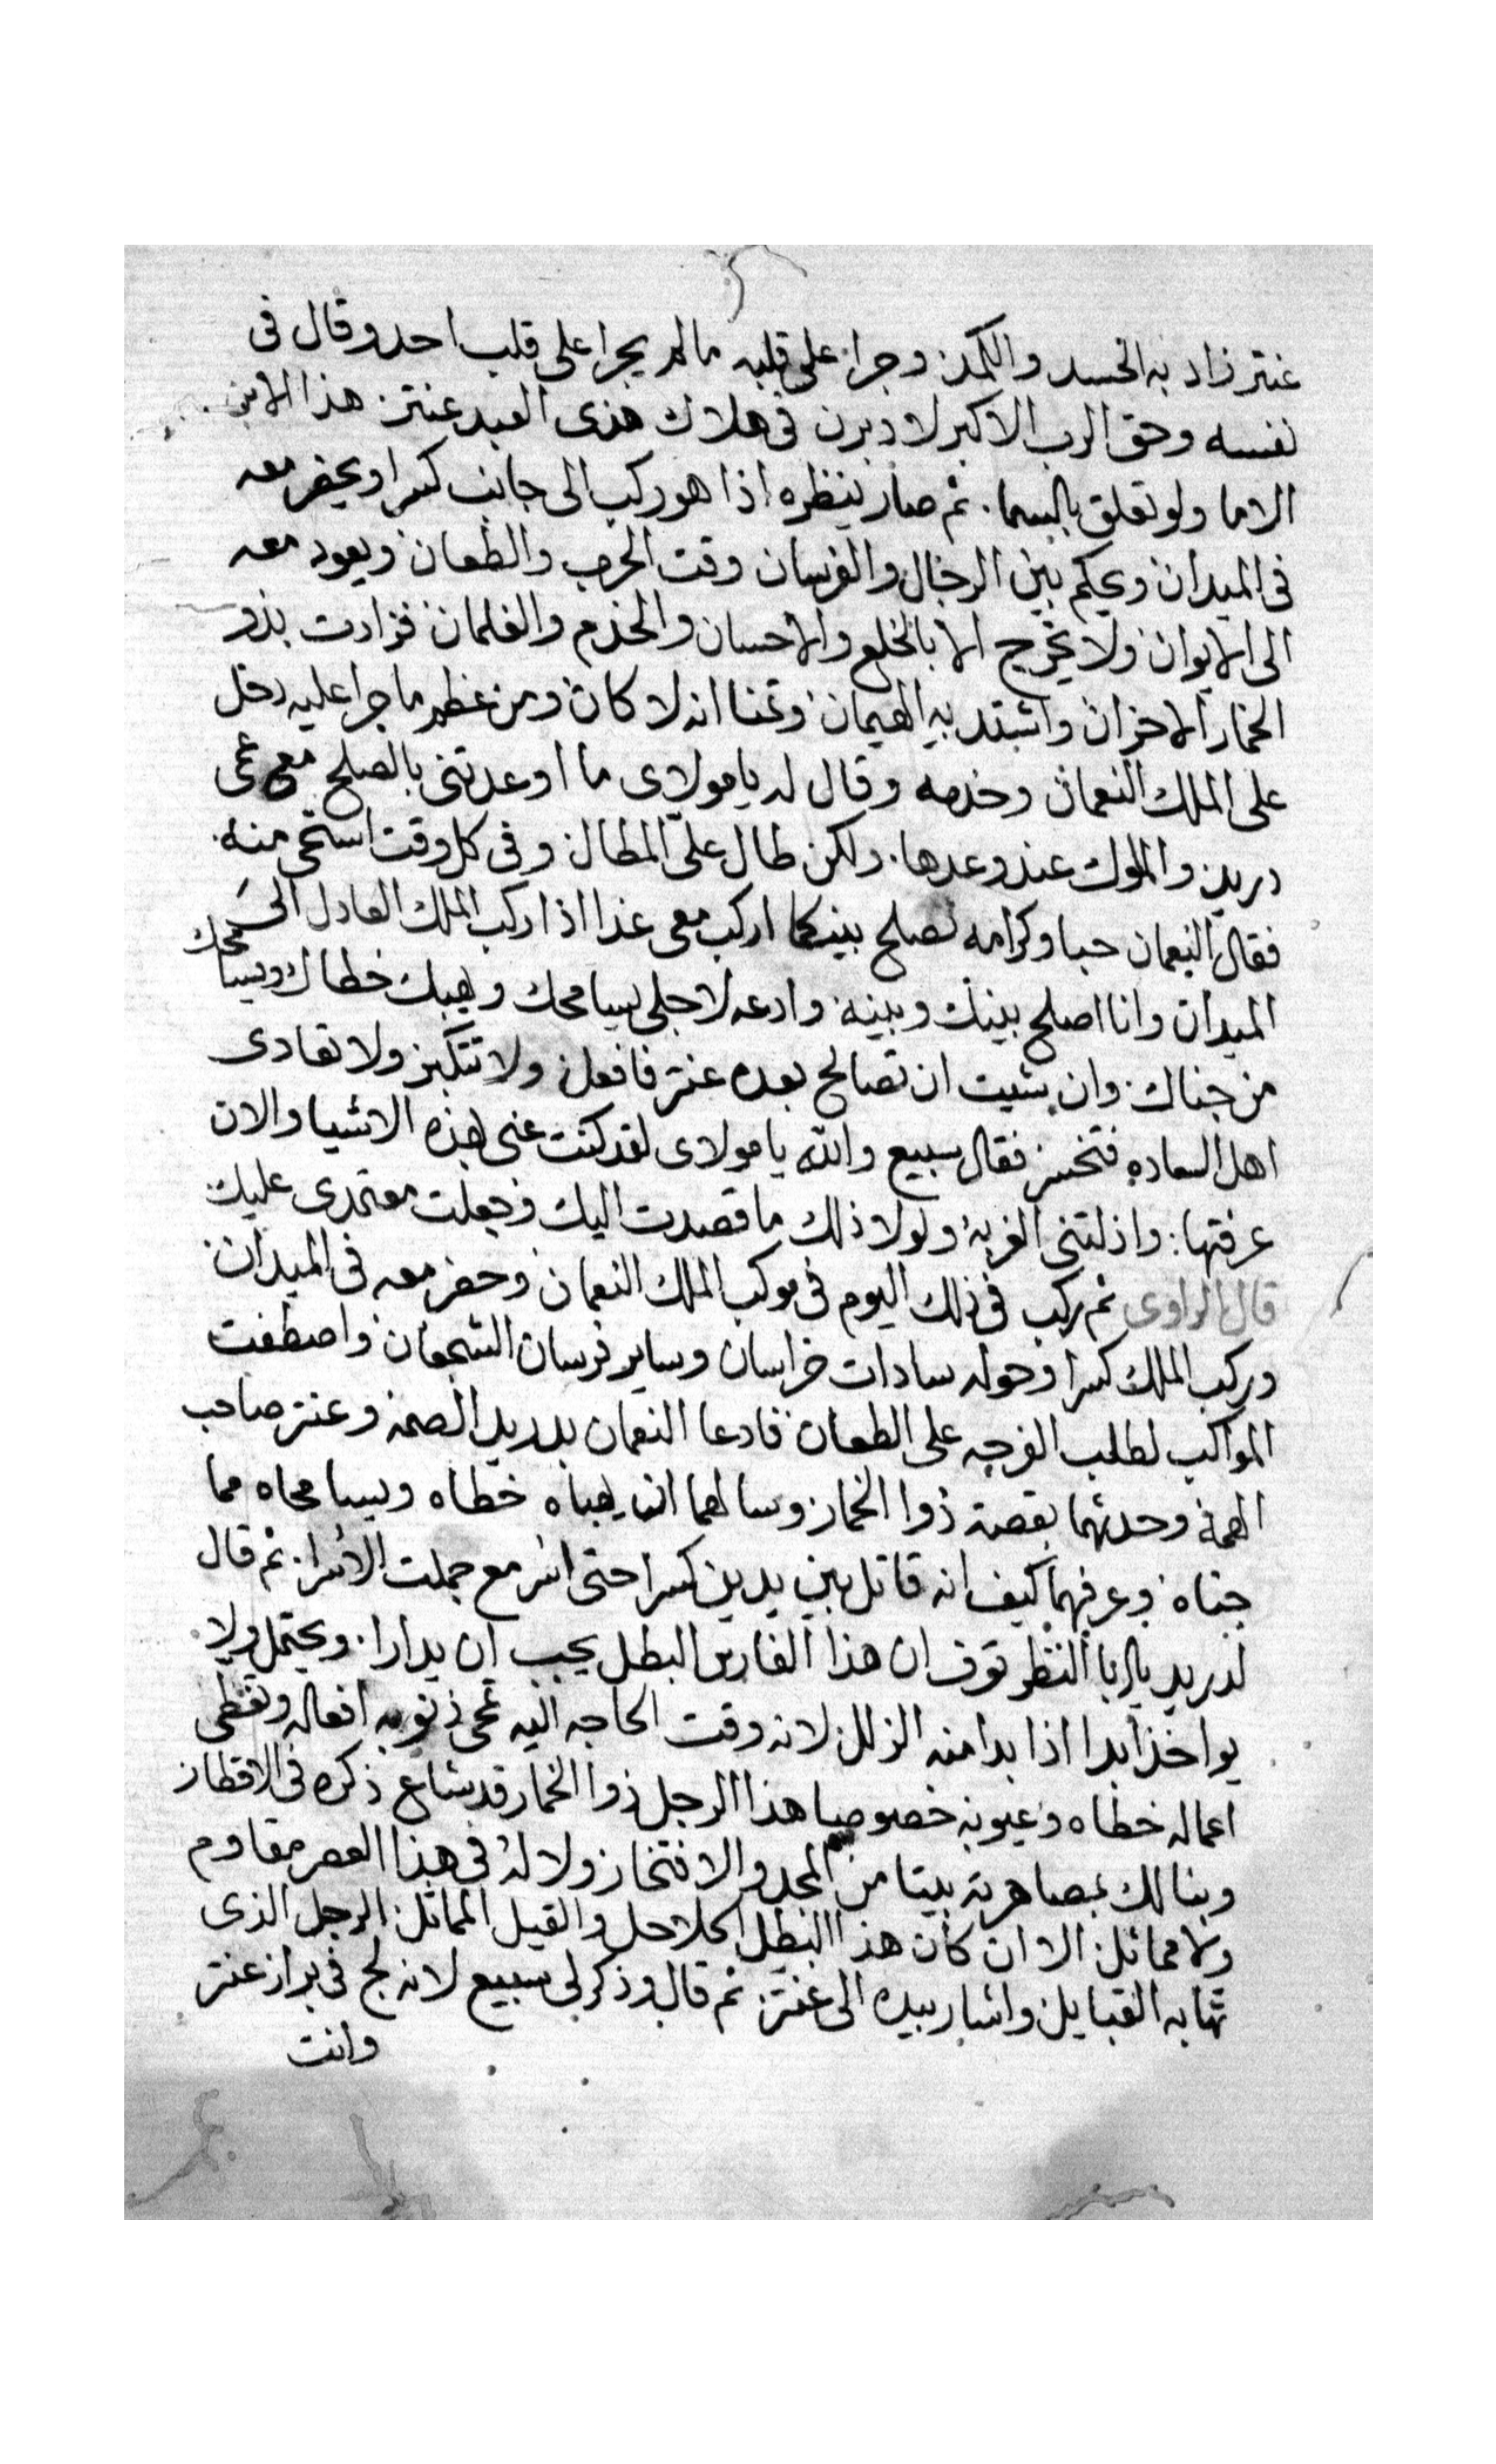 عنتر زاد به الحسد والكمد وجرا على قلبه مالم يجرا على قلب احد وقال فى
نفسه وحق الرب الاكبر لا دبرن فى هلاك هذى العبد عنتر هذا الابن
الاما ولو تعلق بالسما ثم صار ينظره اذا هو ركب الى جانب كسرا ويحضر معه
فى الميدان ويحكم بين الرجال والفرسان وقت الحرب والطعان ويعود معه
الى الايوان ولا يخرج الا بالخلع والاحسان والخدم والغلمان فزادت بذو
الخمار الاحزان واشتد به الهيمان وتمنا انه لا كان ومن عظم ما جرا عليه دخل
على الملك النعمان وخدمه وقال له يا مولاى ما اوعدتنى بالصلح مع عمى
دريد والملوك عند وعدها ولكن طال علىّ المطال وفى كل وقت استحى منه
فقال النعمان حبا وكرامه نصلح بينكما اركب معى غدا اذا ركب الملك العادل الى
الميدان وانا اصلح بينك وبينه وادعه لاجلى يسامحك ويهبك خطاك ويسامحك
من جناك وان شيت ان تصالح بعده عنتر فافعل ولا تتكبر ولا تعادى
اهل السعاده فتخسر فقال سبيع والله يا مولاى لقد كنت عنى هذه الاشيا والان
عرفتها واذلتنى الغربه ولولا ذلك ما قصدت اليك وجعلت معتمدى عليك
قال الراوى ثم ركب فى ذلك اليوم فى موكب الملك النعمان وحضر معه فى الميدان
وركب الملك كسرا وحوله سادات خراسان وساير فرسان الشجعان واصطفت
المواكب لطلب الفرجه على الطعان فادعا النعمان بدريد الصمه وعنتر صاحب
الهمه وحدثهما بقصة ذوا الخمار وسالهما ان يهباه خطاه ويسامحاه مما
جناه وعرفهما كيف انه قاتل بين يدين كسرا حتى اسر مع جملت الاسرا ثم قال
لدريد يا ابا النظر توف ان هذا الفارس البطل يجب ان يدارا ويحتمل ولا
يواخذ ابدا اذا بدا منه الزلل لانه وقت الحاجه اليه تمحى ذنوبه افعاله وتغطى
اعماله خطاه وعيوبه خصوصا هذا الرجل ذوا الخمار قد شاع ذكره فى الاقطار
وبنا لك بمصاهرته بيتا من المجد والافتخار ولا له فى هذا العصر مقاوم
ولا مماثل الا ان كان هذا البطل الحلاحل والقيل المماثل الرجل الذى
تهابه القبايل واشار بيده الى عنتر ثم قال وذكر لى سبيع لانه لج فى براز عنتر
وانت